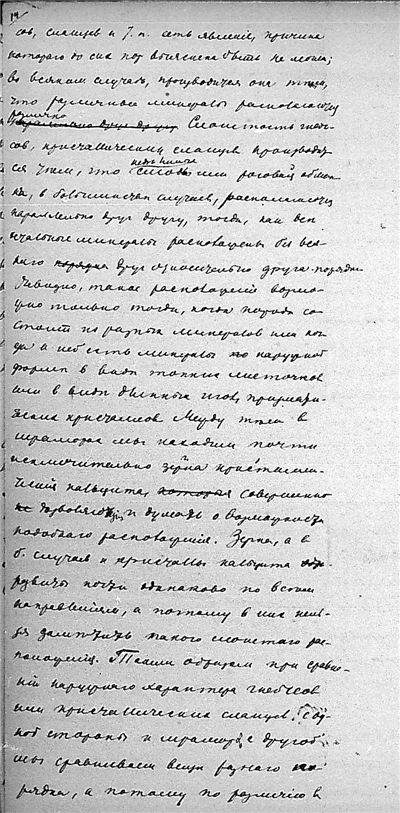 14
сов, сланцев и т. п. есть явление, причина
котораго до сих пор выяснена быть не может;
во всяком случае, производится она тем,
что различные минералы расположены
различно параллельно друг другу. Слоистость гней-
сов, кристаллических сланцев производит-
ся тем, что слюда или роговая обман-
ка, в большинстве случаев, расположены
параллельно друг другу, тогда, как
остальные минералы расположены без вся-
каго порядка друг относительно друга порядка
Очевидно, такое расположение возмо-
жно только тогда, когда порода со-
стоит из разных минералов или ког-
да в ней есть минералы по наружной
форме в виде тонких листочков
или в виде длинных игол, призмати-
ческих кристаллов. Между тем в
мраморах мы находим почти
исключительно зерна кристалли-
ческаго кальцита, которая совершенно
не дозволяют и думать о возможности
подобнаго расположения. Зерна, а в
б. случаев и кристаллы кальцита
развиты почти одинаково по всем
направлениям, а потому в них нель-
зя замечать такого слоистаго рас-
положения. Таким образом при сравне-
нии наружнаго характера гнейсов
или кристаллических сланцев с од-
ной стороны и мрамора с другой
мы сравниваем вещи разнаго по-
рядка, а потому по различию в